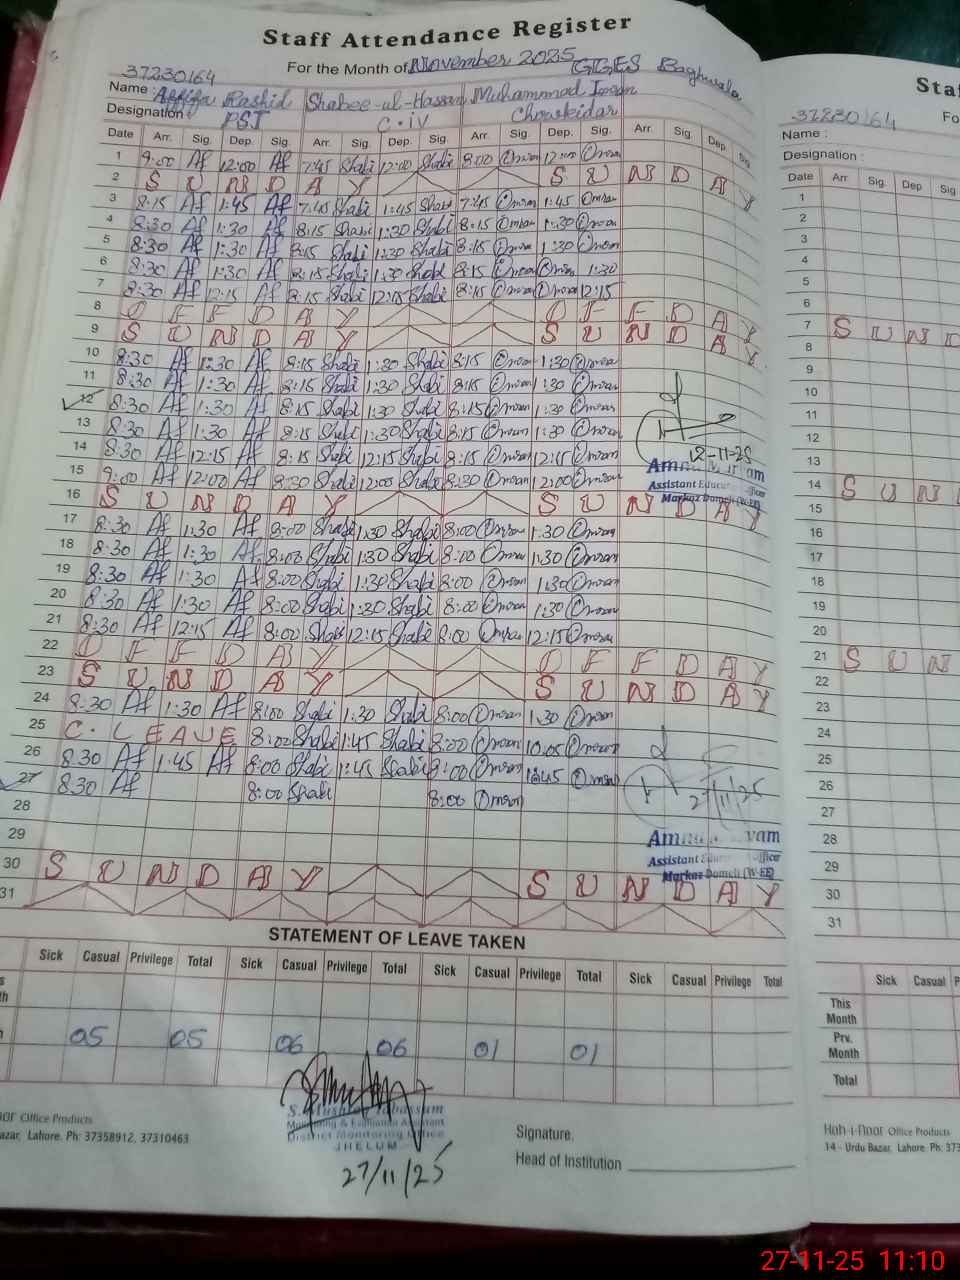 Staff Attendance Register
For the Month of November 2025 GGES Baghwala
37230164
Name : Affifa Rashid Shabee-ul-Hassan Muhammad Imran
Designation PST C-iv Chowkidar
Date Arr. Sig. Dep. Sig. Arr. Sig. Dep. Sig. Arr. Sig. Dep. Sig. Arr. Sig. Dep. Sig.
1 9:00 Af 12:00 Af 7:45 Shabi 12:00 Shabi 8:00 Omran 12:00 Omran
2 S U N D A Y S U N D A Y
3 8:15 Af 1:45 Af 7:45 Shabi 1:45 Shabi 7:45 Omran 1:45 Omran
4 8:30 Af 1:30 Af 8:15 Shabi 1:30 Shabi 8:15 Omran 1:30 Omran
5 8:30 Af 1:30 Af 8:15 Shabi 1:30 Shabi 8:15 Omran 1:30 Omran
6 8:30 Af 1:30 Af 8:15 Shabi 1:30 Shabi 8:15 Omran Omran 1:30
7 8:30 Af 12:15 Af 8:15 Shabi 12:15 Shabi 8:15 Omran Omran 12:15
8 O F F D A Y O F F D A Y
9 S U N D A Y S U N D A Y
10 8:30 Af 1:30 Af 8:15 Shabi 1:30 Shabi 8:15 Omran 1:30 Omran
11 8:30 Af 1:30 Af 8:15 Shabi 1:30 Shabi 8:15 Omran 1:30 Omran
12 8:30 Af 1:30 Af 8:15 Shabi 1:30 Shabi 8:15 Omran 1:30 Omran
13 8:30 Af 1:30 Af 8:15 Shabi 1:30 Shabi 8:15 Omran 1:30 Omran
12-11-25
14 8:30 Af 12:15 Af 8:15 Shabi 12:15 Shabi 8:15 Omran 12:15 Omran
Amna Maryam
15 9:00 Af 12:00 Af 8:30 Shabi 12:00 Shabi 8:30 Omran 12:00 Omran
Assistant Education Officer
Markaz Domeli (W-EE)
16 S U N D A Y S U N D A Y
17 8:30 Af 1:30 Af 8:00 Shabi 1:30 Shabi 8:00 Omran 1:30 Omran
18 8:30 Af 1:30 Af 8:00 Shabi 1:30 Shabi 8:00 Omran 1:30 Omran
19 8:30 Af 1:30 Af 8:00 Shabi 1:30 Shabi 8:00 Omran 1:30 Omran
20 8:30 Af 1:30 Af 8:00 Shabi 1:30 Shabi 8:00 Omran 1:30 Omran
21 8:30 Af 12:15 Af 8:00 Shabi 12:15 Shabi 8:00 Omran 12:15 Omran
22 O F F D A Y O F F D A Y
23 S U N D A Y S U N D A Y
24 8:30 Af 1:30 Af 8:00 Shabi 1:30 Shabi 8:00 Omran 1:30 Omran
25 C. L E A V E 8:00 Shabi 1:45 Shabi 8:00 Omran 10:05 Omran
26 8:30 Af 1:45 Af 8:00 Shabi 1:45 Shabi 8:00 Omran 1:45 Omran
27 8:30 Af 8:00 Shabi 8:00 Omran
27/11/25
28
29
Amna Maryam
Assistant Education Officer
Markaz Domeli (W-EE)
30 S U N D A Y S U N D A Y
31
STATEMENT OF LEAVE TAKEN
Sick Casual Privilege Total Sick Casual Privilege Total Sick Casual Privilege Total Sick Casual Privilege Total
05 05 06 06 01 01
Tabassum
Monitoring & Evaluation Assistant
District Monitoring Office
JHELUM
27/11/25
Office Products
Lahore. Ph: 37358912, 37310463
Signature.
Head of Institution
37230164
Name :
Designation :
Date Arr. Sig. Dep Sig
1
2
3
4
5
6
7 S U N D
8
9
10
11
12
13
14 S U N D
15
16
17
18
19
20
21 S U N
22
23
24
25
26
27
28
29
30
31
Sick Casual
This Month
Prv. Month
Total
Hoh-i-Noor Office Products
14 - Urdu Bazar, Lahore. Ph:
27-11-25 11:10